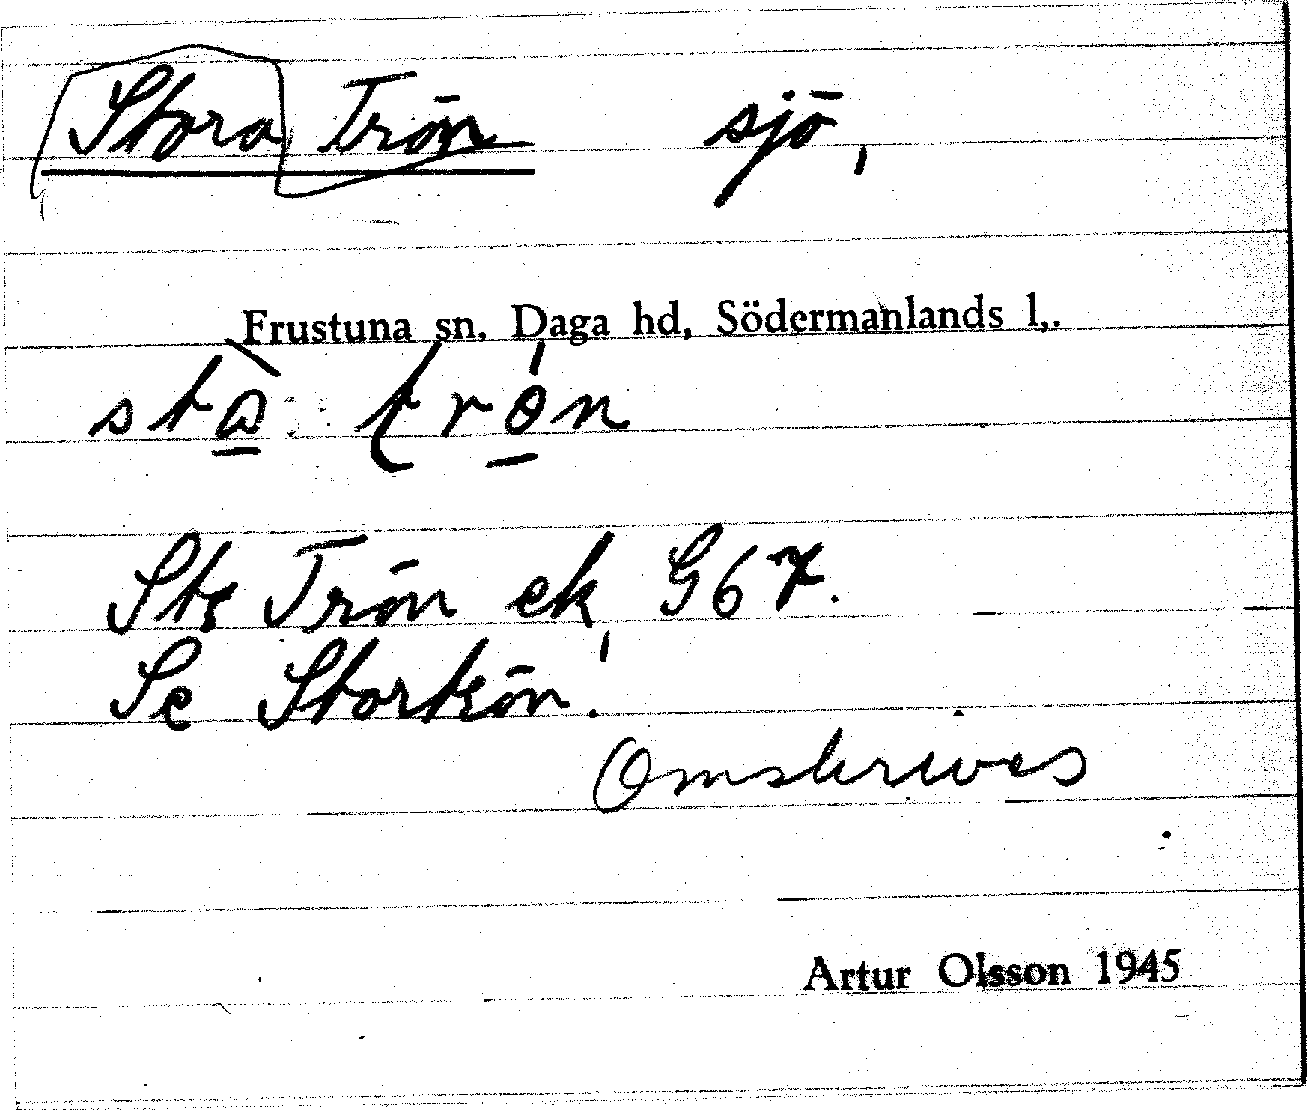 Stora Trön sjö,
Frustuna sn, Daga hd, Södermanlands l,.
Trön ek, G67.
Se Stortrön!
Omskrives
Artur Olsson 1945